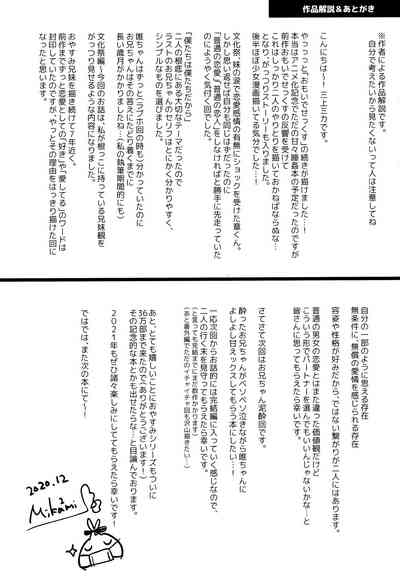 作品解説＆あとがき
※作者による作品解説です。
自分で考えたいから見たくないって人は注意してね
こんにちは〜！三上ミカです。
やっっっと「おもいでせっくす」の続きが描けました…！
前作おもいでせっくすの反響を受けて
これはしっかり二人のやりとりを描いておかねばならぬな…
後半ほぼ少女漫画描いてる気分でした…！
文化祭、妹の涙で恋愛感情の有無にショックを受けた章くん。
しかし思い返せば自分も同じはずだったのに
「普通の恋愛」「普通の恋人」をしなければと勝手に先走っていた
のにようやく気付く回でした。
「僕たちは僕たちだから」
二人の根底にある大切なテーマだったので
シンプルなものを選びました。
唯ちゃんはずっと（ラブホ回の時も）分かっていたのに
お兄ちゃんはその答えにたどり着くまでに
長い歳月がかかりましたね…（私の執筆期間的にも）
文化祭編〜今回のお話は、私が根っこに持っている兄妹観を
がっつり見せるような内容になりました。
おやすみ兄妹を描き続けて7年近く。
前作までずっと恋愛としての「好き」や「愛してる」のワードは
封印していたのだけど、やっとその理由をはっきり描けた回に
なったと思います。
自分の一部のように思える存在
無条件に、無償の愛情を感じられる存在
容姿や性格が好みだから、ではない繋がりが二人にはあります。
普通の男女の恋愛とはまた違った価値観だけど
こういう形でパートナーを選んでもいいんじゃないかな〜と
皆さんに思ってもらえたら幸いです。
さてさて次回はお兄ちゃん泥酔回です。
酔ったお兄ちゃんがベソベソ泣きながら唯ちゃんに
よしよし甘えックスしてもらう本にしたい…！
一応次回からお話的には完結編に入っていく感じなので、
二人の行く末を見守ってもらえたら幸いです。
あと、とても嬉しいことにおやすみシリーズもついに
36万部まで来たので（ありがとうございます！）
その記念的な本とかも出せたらな〜と目論んでおります。
2021年もぜひ諸々楽しみにしててもらえたら幸いです！
ではでは、また次の本にて〜！
2020.12
Mikami